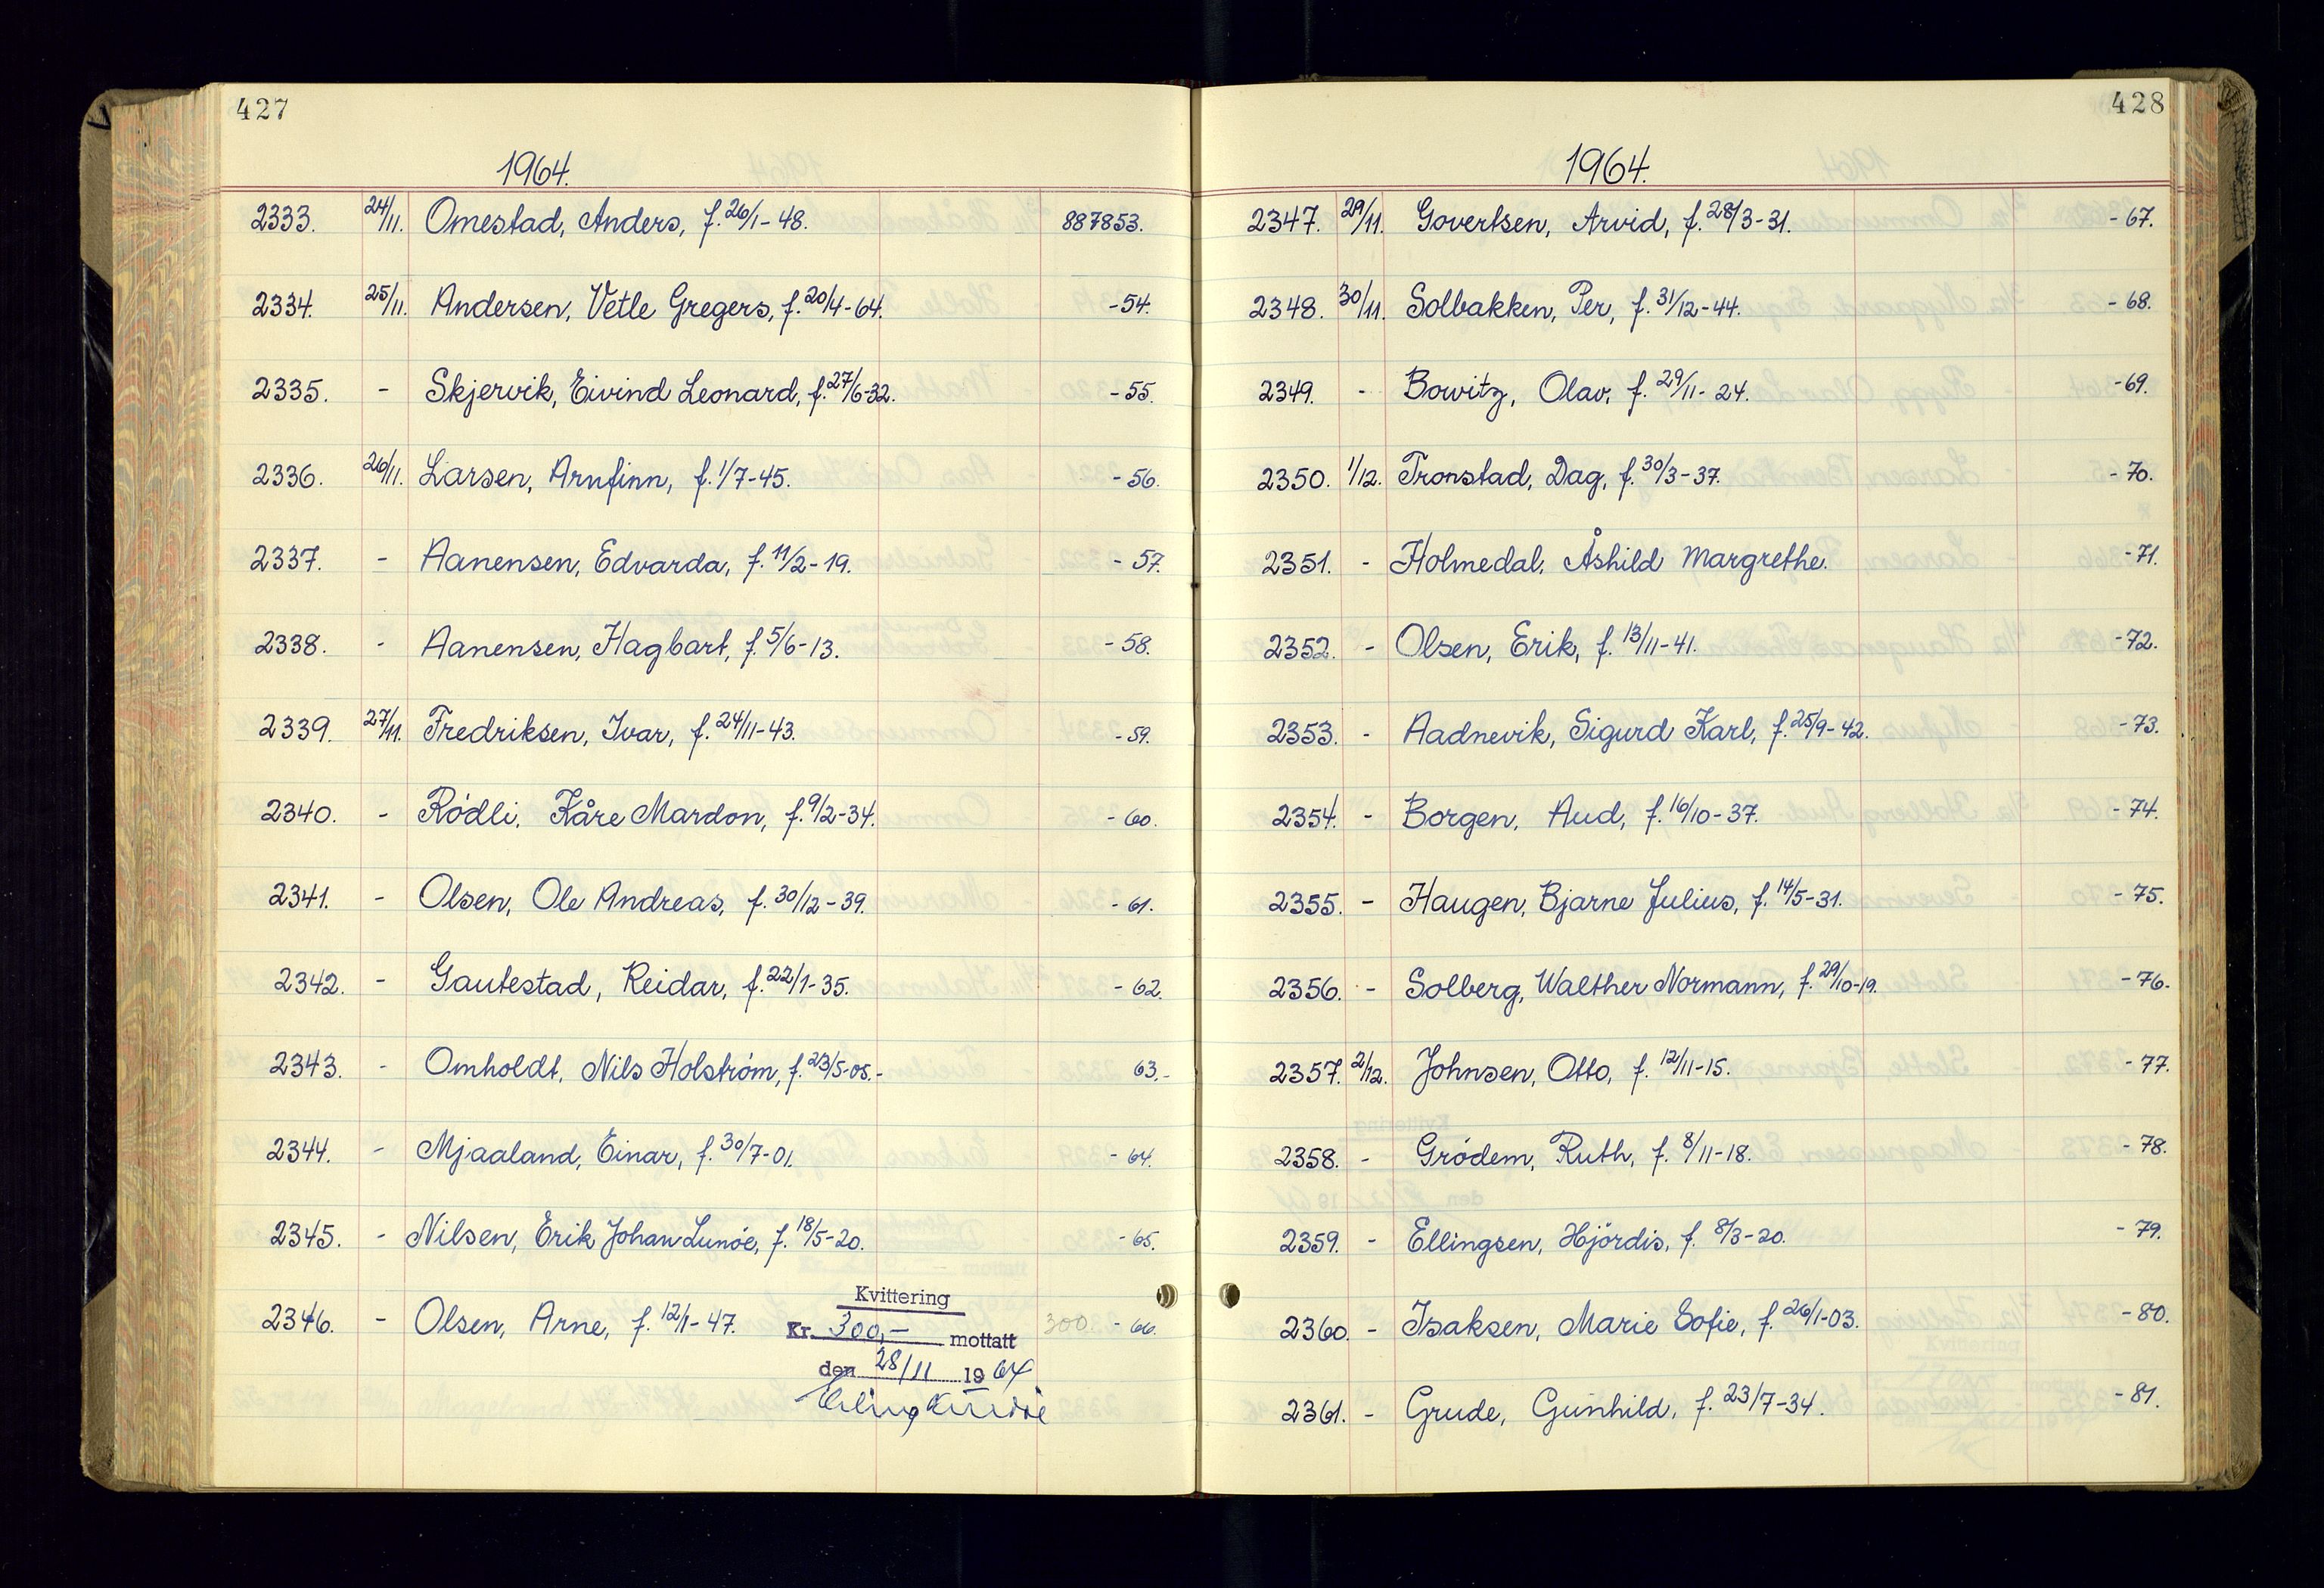 427
1964.
2333. 24/11. Omestad, Anders, f. 26/1-48. 887853.
2334. 25/11. Andersen, Vetle Gregers, f. 20/4-64. -54.
2335. - Skjervik, Eivind Leonard, f. 27/6-32. -55.
2336. 26/11. Larsen, Arnfinn, f. 1/7-45. -56.
2337. - Aanensen, Edvarda, f. 11/2-19. -57.
2338. - Aanensen, Hagbart, f. 5/6-13. -58.
2339. 27/11. Fredriksen, Ivar, f. 24/11-43. -59.
2340. - Rødli, Kåre Mardon, f. 9/2-34. -60.
2341. - Olsen, Ole Andreas, f. 30/12-39. -61.
2342. - Gautestad, Reidar, f. 22/1-35. -62.
2343. - Omholdt, Nils Holstrøm, f. 23/5-05.- 63.-
2344. - Mjaaland, Einar, f. 30/7-01. -64.
2345. - Nilsen, Erik Johan Lunøe, f. 18/5-20. -65.
2346. - Olsen, Arne, f. 12/1-47. 300. -66.
Kvittering
Kr. 300,- mottatt
den 28/11 1964
428
1964.
2347. 29/11. Govertsen, Arvid, f. 28/3-31. -67.
2348. 30/11. Solbakken, Per, f. 31/12-44. -68.
2349. - Bowitz, Olav, f. 29/11-24. -69.
2350. 1/12. Tronstad, Dag, f. 30/3-37. -70.
2351. - Holmedal, Åshild Margrethe. -71.
2352. - Olsen, Erik, f. 13/11-41. -72.
2353. - Aadnevik, Sigurd Karl, f. 25/9-42. -73.
2354. - Borgen, Aud, f. 16/10-37. -74.
2355. - Haugen, Bjarne Julius, f. 14/5-31. -75.
2356. - Solberg, Walther Normann, f. 29/10-19. -76.
2357. 2/12. Johnsen, Otto, f. 12/11-15. -77.
2358. - Grødem, Ruth, f. 8/11-18. -78.
2359. - Ellingsen, Hjørdis, f. 8/3-20. -79.
2360. - Isaksen, Marie Sofie, f. 26/1-03. -80.
2361. - Grude, Gunhild, f. 23/7-34. -81.